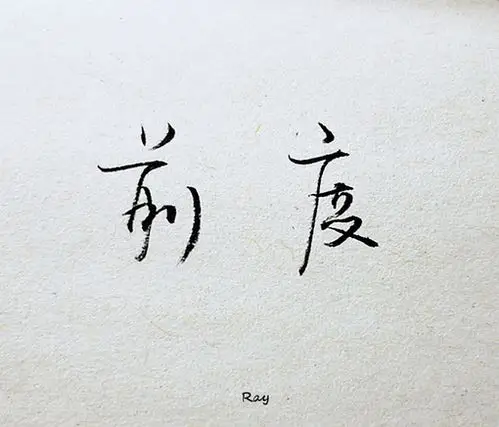 前度
Ray